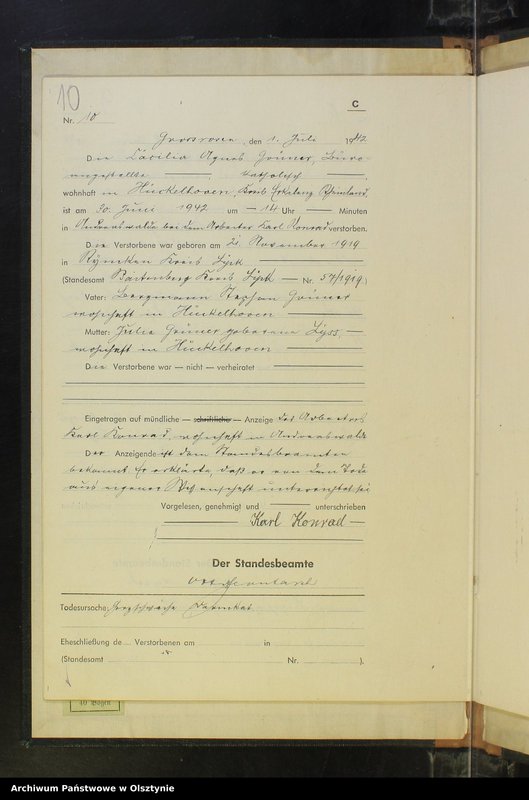 10
C
Nr. 10
Grossrosen, den 1. Juli 1942
Die Cäcilia Agnes Grüner, Büro-
angestellte katholisch
wohnhaft in Hückelhoven, Kreis Erkelenz Rheinland
ist am 30. Juni 1942 um 14 Uhr Minuten
in Andreaswalde bei dem Arbeiter Karl Konrad verstorben.
Die Verstorbene war geboren am 21. November 1919
in Kreis Lyck
(Standesamt Kreis Lyck Nr. 57/1919)
Vater: Bergmann Stephan Grüner
wohnhaft in Hückelhoven
Mutter: Julie Grüner geborene
wohnhaft in Hückelhoven
Die Verstorbene war — nicht — verheiratet
Eingetragen auf mündliche — schriftliche — Anzeige des Arbeiters
Karl Konrad, wohnhaft in Andreaswalde
Der Anzeigende ist dem Standesbeamten
bekannt. Er erklärte, daß er von dem Tode
aus eigener Wissenschaft unterrichtet sei
Vorgelesen, genehmigt und unterschrieben
Karl Konrad
Der Standesbeamte
Todesursache: Herzschwäche
Eheschließung de Verstorbenen am in
(Standesamt Nr. ).
40 Bogen
Archiwum Państwowe w Olsztynie